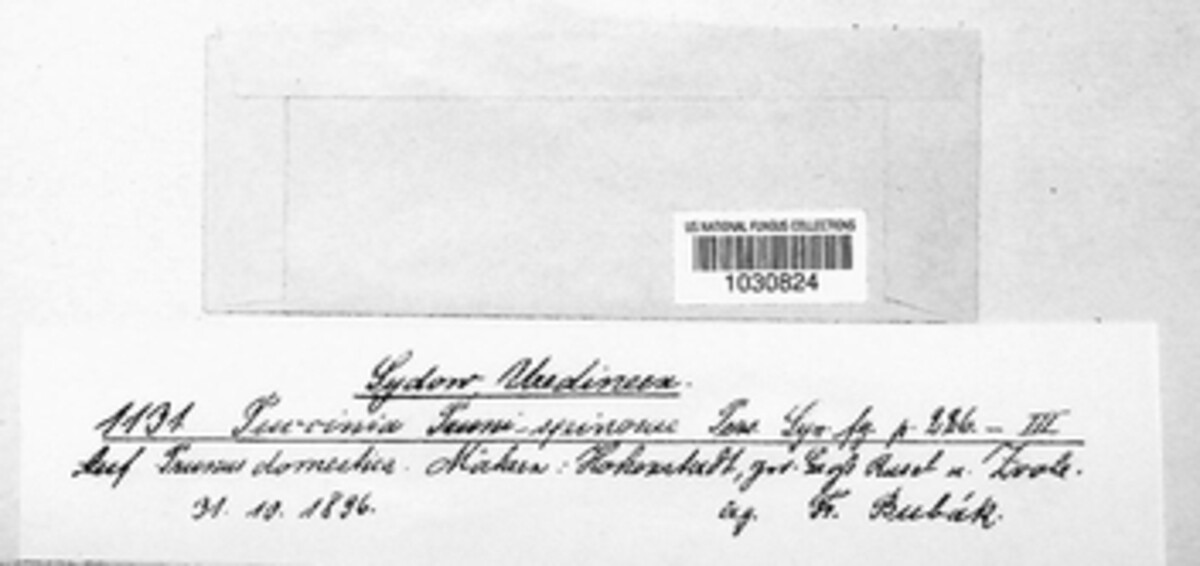 US NATIONAL FUNGUS COLLECTIONS
1030824
Sydow, Uredineen.
1131 Puccinia Pruni-spinosae Pers. Syn. fg. p. 226. — III
Auf Prunus domestica. Mähren: Hohenstadt, u.
31. 10. 1896. leg. Fr. Bubák.